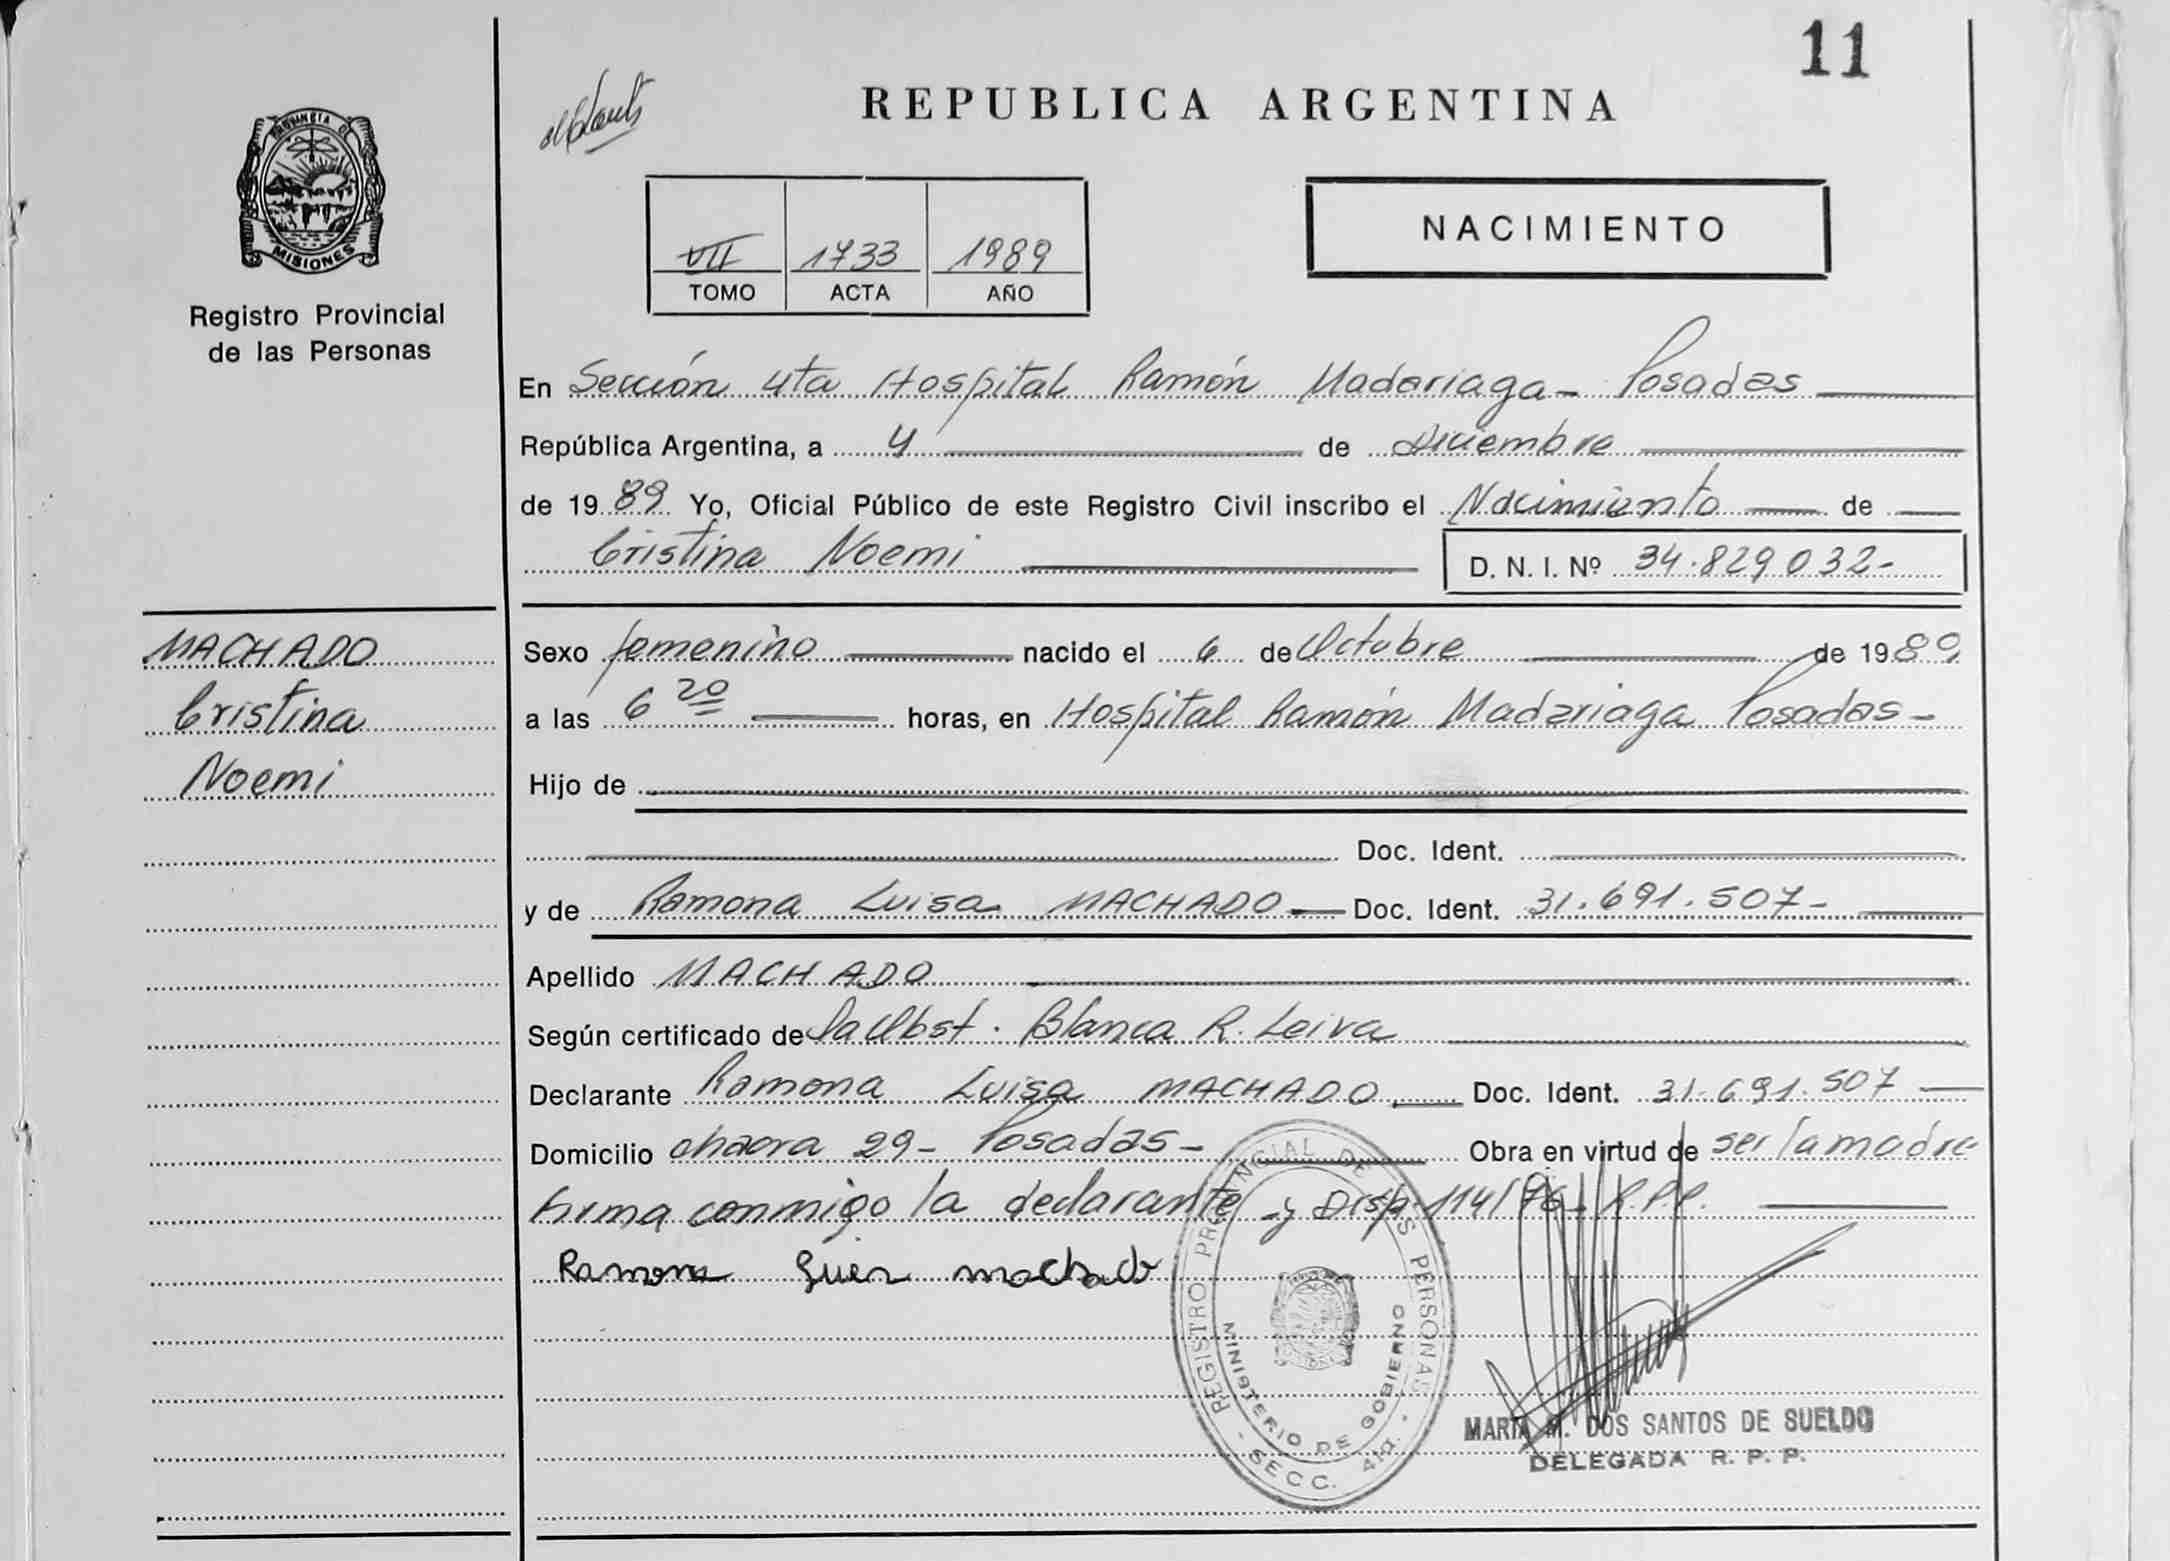 11
REPUBLICA ARGENTINA
PROVINCIA DE
MISIONES
Registro Provincial
de las Personas
VII 1733 1989
TOMO ACTA AÑO
NACIMIENTO
En Sección 4ta Hospital Ramón Madariaga - Posadas
República Argentina, a 4 de Diciembre
de 1989 Yo, Oficial Público de este Registro Civil inscribo el Nacimiento de
Cristina Noemi D. N. I. Nº 34.829.032-
MACHADO
Cristina
Noemi
Sexo femenino nacido el 6 de Octubre de 1989
a las 6 20 horas, en Hospital Ramón Madariaga Posadas-
Hijo de
Doc. Ident.
y de Ramona Luisa MACHADO Doc. Ident. 31.691.507-
Apellido MACHADO
Según certificado de la Obst. Blanca R. Leiva
Declarante Ramona Luisa MACHADO Doc. Ident. 31.691.507
Domicilio chacra 29- Posadas- Obra en virtud de ser la madre
firma conmigo la declarante - y Disp. 114/76 R.P.P.
Ramona machado
REGISTRO PROVINCIAL DE LAS PERSONAS
MINISTERIO DE GOBIERNO
- SECC. 4ta. -
MARIA M. DOS SANTOS DE SUELDO
DELEGADA R. P. P.